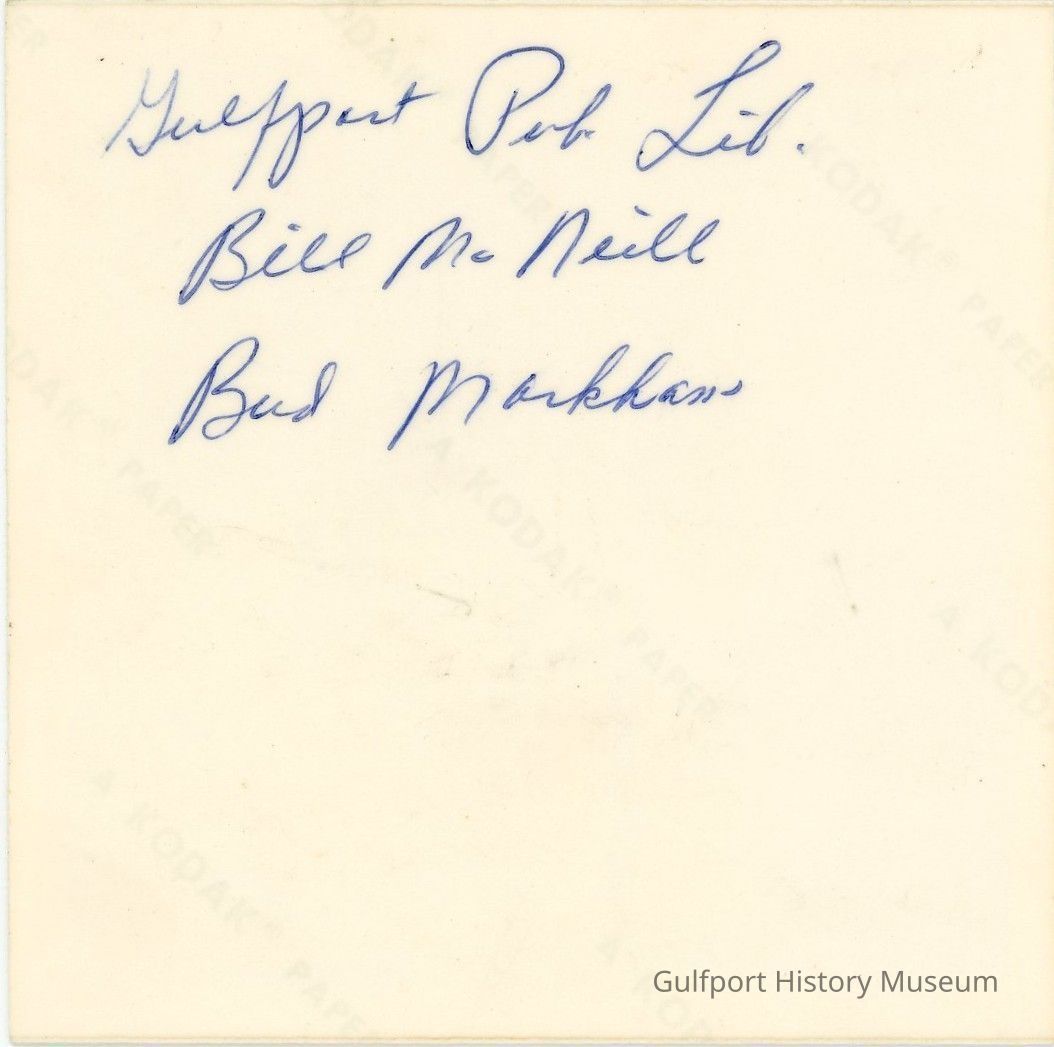 Gulfport Pub. Lib.
Bill McNeill
Bud Markham
A KODAK® PAPER
Gulfport History Museum